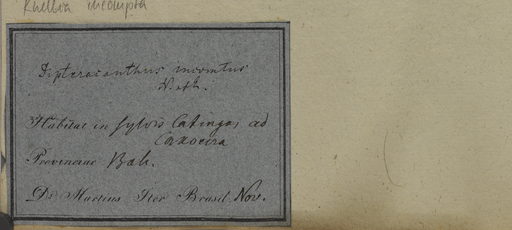 Ruellia incompta
Dipteracanthus incomtus
N. ab E.
Habitat in sylvis Catingas ad
Caxoeira
Provinciae Bah.
Dr. Martius Iter Brasil. Nov.